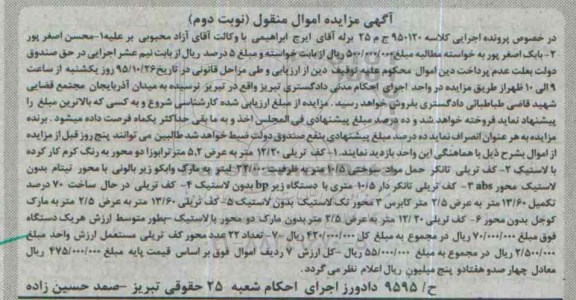 آگهی مزایده اموال منقول (نوبت دوم)
در خصوص پرونده اجرایی کلاسه ۹۵۰۱۲۰ ج م ۲۵ برله آقای ایرج ابراهیمی با وکالت آقای آزاد محبوبی بر علیه ۱-محسن اصغر پور
۲- بابک اصغر پور به خواسته مطالبه مبلغ ۵۰۰/۰۰۰/۰۰۰ ریال از بابت خواسته و مبلغ ۵ درصد ریال از بابت نیم عشر اجرایی در حق صندوق
دولت بعلت عدم پرداخت دین اموال محکوم علیه توقیف دین از ارزیابی و طی مراحل قانونی در تاریخ ۹۵/۱۰/۲۶ روز یکشنبه از ساعت
۹ الی ۱۰ ظهر از طریق مزایده در واحد اجرای احکام مدنی دادگستری تبریز واقع در تبریز نرسیده به میدان آذربایجان مجتمع قضایی
شهید قاضی طباطبائی دادگستری بفروش خواهد رسید . مزایده از مبلغ ارزیابی شده کارشناسی شروع و به کسی که بالاترین مبلغ را
پیشنهاد نماید فروخته خواهد شد و ده درصد مبلغ پیشنهادی فی المجلس اخذ و به ما بقی حداکثر یکماه فرصت داده میشود . برنده
مزایده به هر عنوان انصراف نماید ده درصد مبلغ پیشنهادی بنفع صندوق دولت ضبط خواهد شد طالبین می توانند پنج روز قبل از مزایده
از اموال بشرح ذیل با هماهنگی این واحد بازدید نمایند.۱- کف تریلی ۱۲/۲۰ متر به عرض ۵.۲ متر ترابوزا دو محور به رنگ کرم کار کرده
با لاستیک ۲- کف تریلی تانکر حمل مواد سوختی ۱۰/۵ متر به ظرفیت لیتر به مارک وابکو زیر بالونی با محور تیتام بدون
لاستیک محور abs ۳- کف تریلی تانکر دار ۱۰/۵ متری با دستگاه زیر bp بدون لاستیک ۴- کف تریلی در حال ساخت ۷۰ درصد
تکمیل ۱۳/۶۰ متر به عرض ۲/۵ متر کابرس ۳ محور تک لاستیک بدون لاستیک ۵- کف تریلی ۱۳/۶۰ متر به عرض ۲/۵ متر به مارک
کوجل بدون محور ۶- کف تریلی ۱۲/۲۰ متر به عرض ۲/۵ متر بدون مارک دو محور با لاستیک -بطور متوسط ارزش هریک دستگاه
فوق مبلغ ۷۰/۰۰۰/۰۰۰ ریال در مجموع به مبلغ کل ۴۲۰/۰۰۰/۰۰۰ ریال ۷- تعداد ۲۲ عدد محور کف تریلی مستعمل ارزش واحد مبلغ
۲/۵۰۰/۰۰۰ ریال در مجموع به مبلغ ۵۵/۰۰۰/۰۰۰ ریال -کل ارزش ۷ ردیف اموال فوق بر اساس قیمت پایه مبلغ ۴۷۵/۰۰۰/۰۰۰ ریال
معادل چهار صدو هفتادو پنج میلیون ریال اعلام نظر می گردد.
ح/ ۹۵۹۵ دادورز اجرای احکام شعبه ۲۵ حقوقی تبریز -صمد حسین زاده